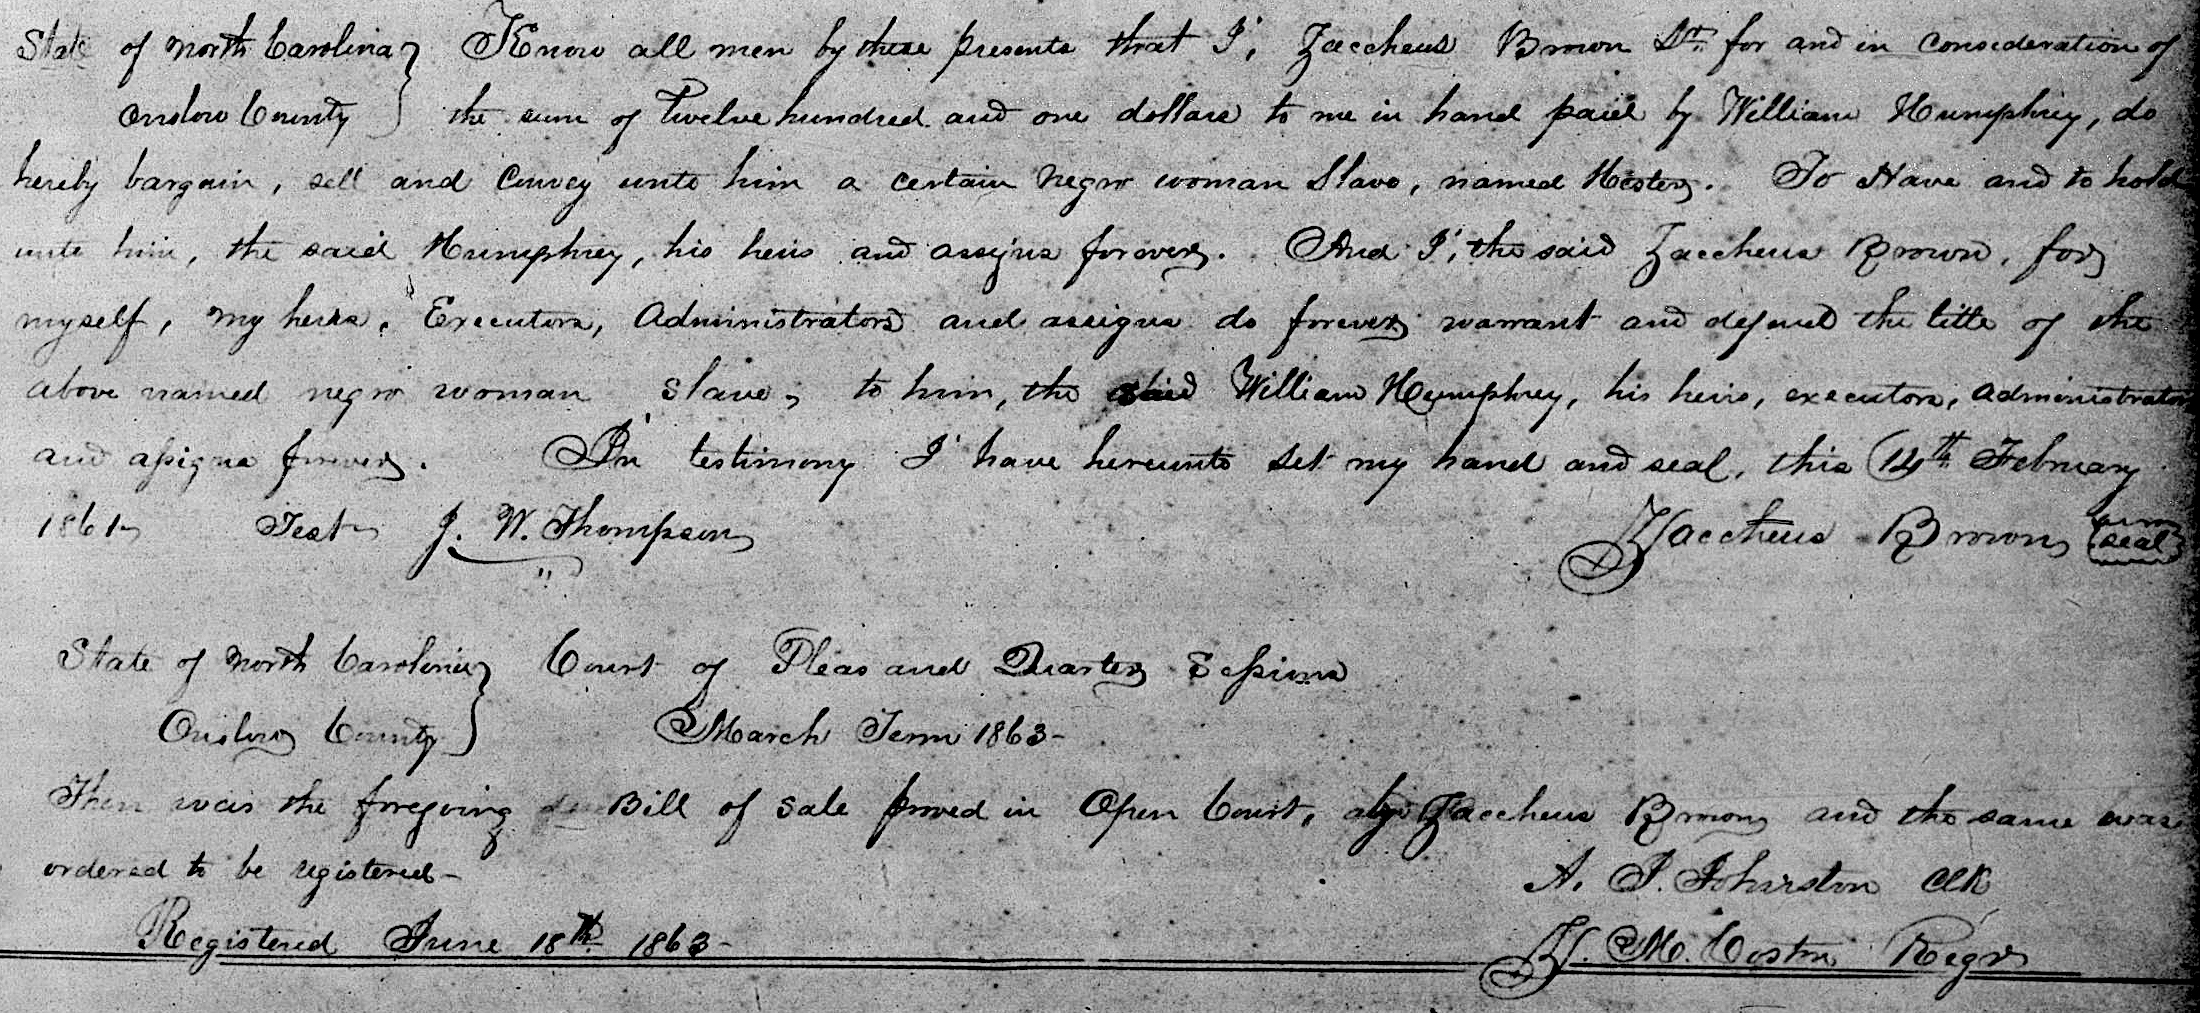 State of North Carolina } Know all men by these presents that I, Zaccheus Brown Sr. for and in consideration of
Onslow County } the sum of Twelve hundred and one dollars to me in hand paid by William Humphrey, do
hereby bargain, sell and convey unto him a certain negro woman Slave, named Hester. To Have and to hold
unto him, the said Humphrey, his heirs and assigns forever. And I, the said Zaccheus Brown, for
myself, my heirs, Executors, Administrators and assigns do forever warrant and defend the title of the
above named negro woman slave, to him, the said William Humphrey, his heirs, executors, administrators
and assigns forever. In testimony I have hereunto set my hand and seal, this 14th February
1861 Test J. W. Thompson Zaccheus Brown seal
State of North Carolina } Court of Pleas and Quarter Sessions
Onslow County } March Term 1863-
Then was the foregoing Bill of sale proved in Open Court, by Zaccheus Brown and the same was
ordered to be registered-
A. J. Johnston Clk
Registered June 18th 1863- H. M. Coston Regr